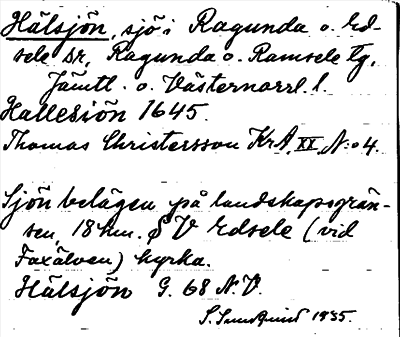 Hälsjön, sjö i Ragunda o. Ed-
sele sr, Ragunda o. Ramsele tg,
Jämtl. o. Västernorrl. l.
Hallesiön 1645.
Thomas Christersson KrA, XX, N:o 4.
Sjön belägen på landskapsgrän-
sen, 18 km. S V Edsele (vid
Faxälven) kyrka.
Hälsjön G. 68 N.V.
S. 1935.